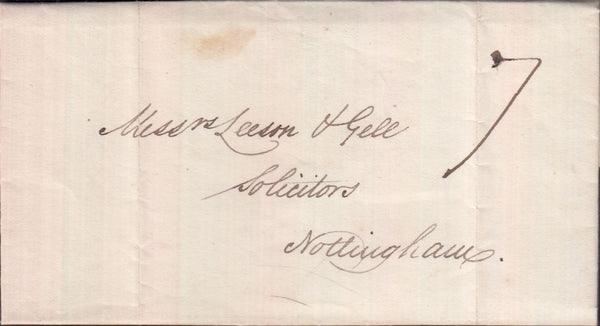 7
Messrs Leeson & Gell
Solicitors
Nottingham.